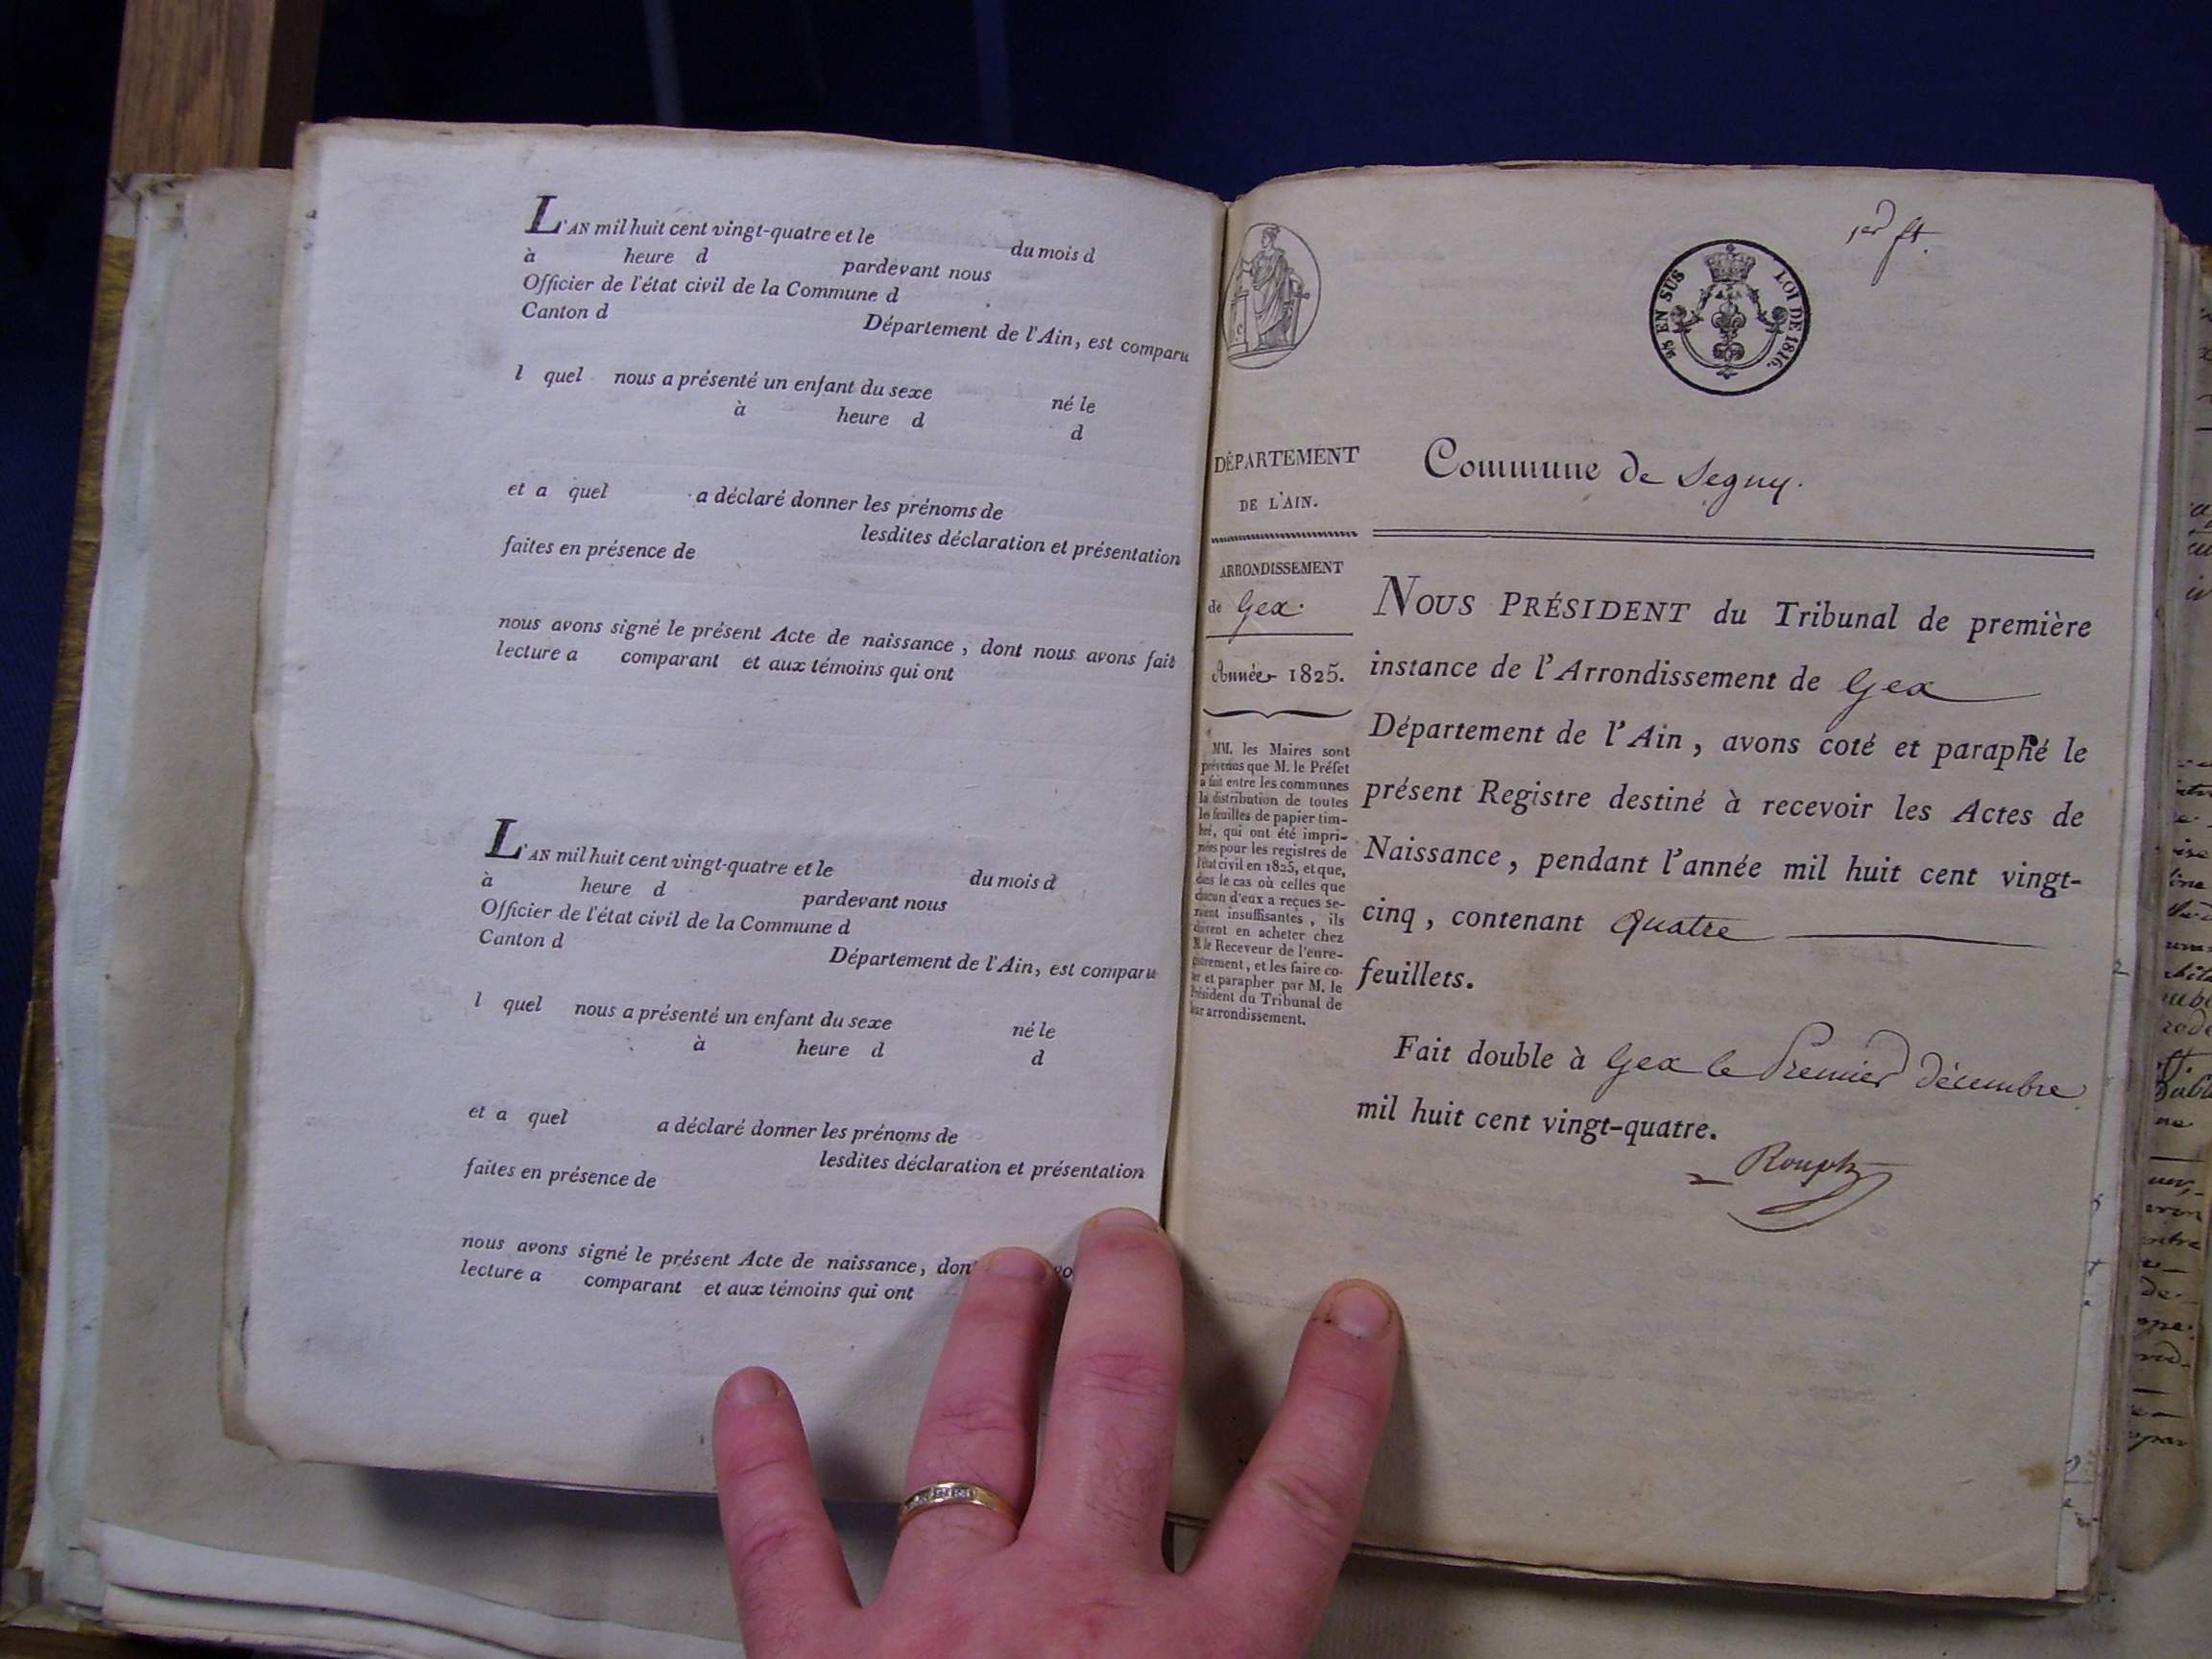 L'AN mil huit cent vingt-quatre et le du mois d
à heure d pardevant nous
Officier de l'état civil de la Commune d
Canton d Département de l'Ain, est comparu
l quel nous a présenté un enfant du sexe né le
à heure d d
et a quel a déclaré donner les prénoms de
lesdites déclaration et présentation
faites en présence de
nous avons signé le présent Acte de naissance, dont nous avons fait
lecture a comparant et aux témoins qui ont
L'AN mil huit cent vingt-quatre et le du mois d
à heure d pardevant nous
Officier de l'état civil de la Commune d
Canton d Département de l'Ain, est comparu
l quel nous a présenté un enfant du sexe né le
à heure d d
et a quel a déclaré donner les prénoms de
lesdites déclaration et présentation
faites en présence de
nous avons signé le présent Acte de naissance,
lecture a comparant et aux témoins qui ont
1er ft.
EN SUS LOI DE 1816.
DÉPARTEMENT
DE L'AIN.
ARRONDISSEMENT
de Gex.
Année 1825.
MM. les Maires sont
prévenus que M. le Préfet
a fait entre les communes
la distribution de toutes
les feuilles de papier tim-
bré, qui ont été impri-
mées pour les registres de
l'état civil en 1825, et que,
dans le cas où celles que
chacun d'eux a reçues se-
roient insuffisantes, ils
doivent en acheter chez
M. le Receveur de l'enre-
gistrement, et les faire co-
ter et parapher par M. le
Président du Tribunal de
leur arrondissement.
Commune de Segny.
NOUS PRÉSIDENT du Tribunal de première
instance de l'Arrondissement de Gex
Département de l'Ain, avons coté et paraphé le
présent Registre destiné à recevoir les Actes de
Naissance, pendant l'année mil huit cent vingt-
cinq, contenant quatre
feuillets.
Fait double à Gex le Premier décembre
mil huit cent vingt-quatre.